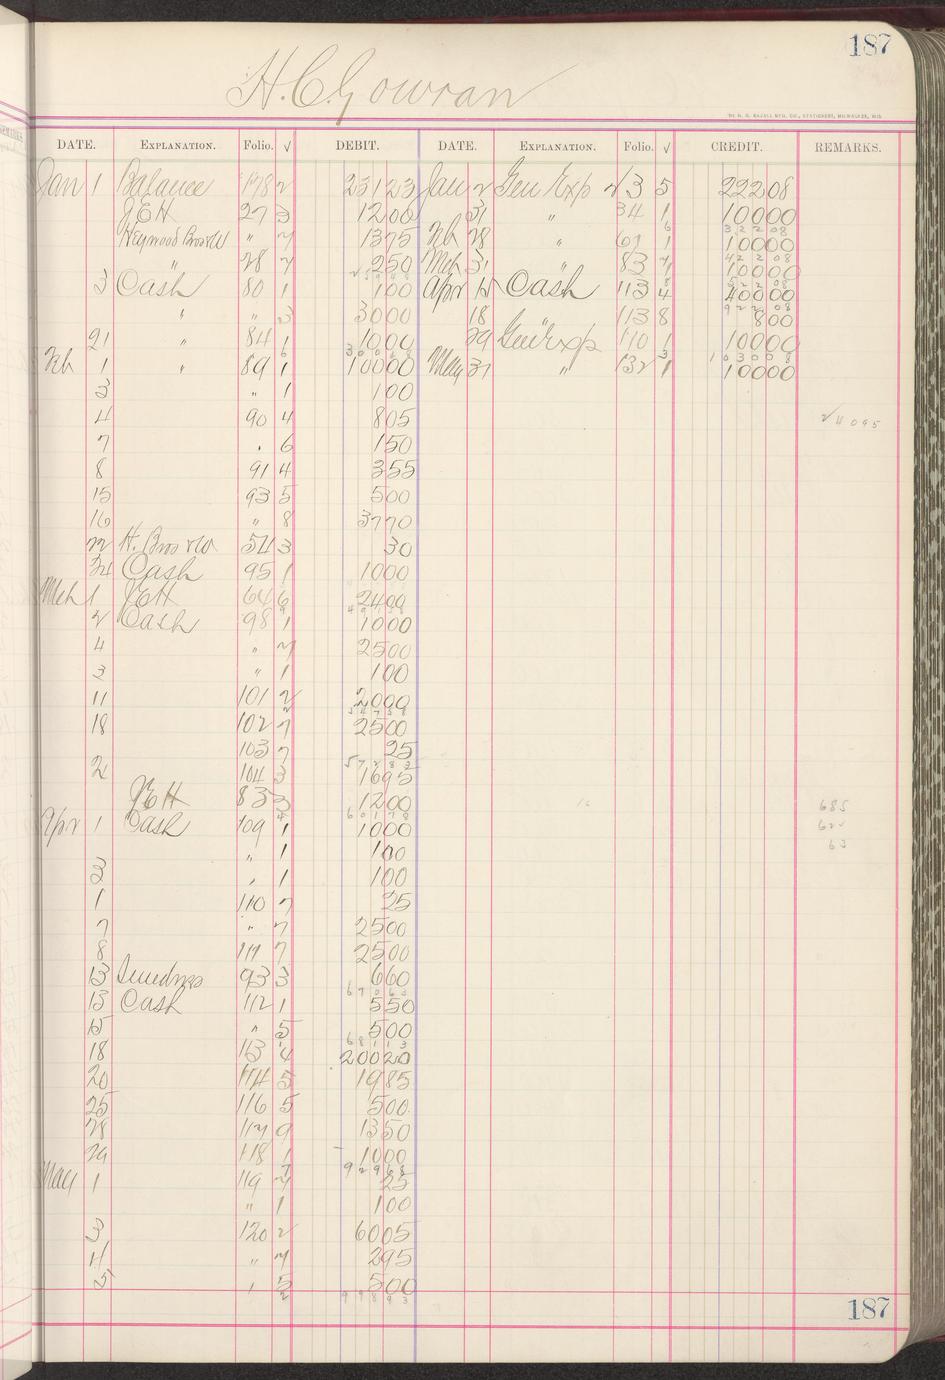 187
H. C. Gowran
DATE. EXPLANATION. Folio. √ DEBIT. DATE. EXPLANATION. Folio. √ CREDIT. REMARKS.
Jan 1 Balance 178 2 231 23 Jan 2 Gen Exp 213 5 222 08
JEH 27 3 12 00 31 " 34 1 100 00
Heywood Bros & W " 7 13 75 Feb 28 " 61 1 100 00
" 28 7 2 50 Mch 31 " 83 7 100 00
3 Cash 80 1 1 00 Apr 12 Cash 113 4 400 00
" " 3 30 00 18 " 113 8 8 00
21 " 84 1 10 00 29 Gen Exp 110 1 100 00
Feb 1 " 89 1 100 00 May 31 " 132 1 100 00
3 " 1 1 00
4 90 4 8 05
7 " 6 1 50
8 91 4 3 55
15 93 5 5 00
16 " 8 37 70
22 H. Bros & W 54 3 30
24 Cash 95 1 10 00
Mch 1 JEH 64 6 24 00
2 Cash 98 1 10 00
4 " 7 25 00
3 " 1 1 00
11 101 2 20 00
18 102 7 25 00
103 7 25
2 104 3 16 95
JEH 83 3 12 00
Apr 1 Cash 109 1 10 00
" 1 1 00
3 " 1 1 00
1 110 7 25
7 " 7 25 00
8 111 7 25 00
13 Sundries 93 3 6 60
13 Cash 112 1 5 50
15 " 5 5 00
18 113 4 200 20
20 114 5 19 85
25 116 5 5 00
28 117 9 13 50
29 118 1 10 00
May 1 119 7 25
" 1 1 00
3 120 2 60 05
4 " 7 2 95
5 " 5 5 00
998 93
685
622
63
187